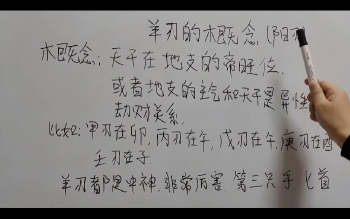 羊刃的概念(阳刃)
概念:天干在地支的帝旺位.
或者地支的主气和天干是异性
劫财关系.
比如:甲刃在卯,丙刃在午,戊刃在午,庚刃在酉
壬刃在子.
羊刃都是中神.非常厉害.第三只手.匕首